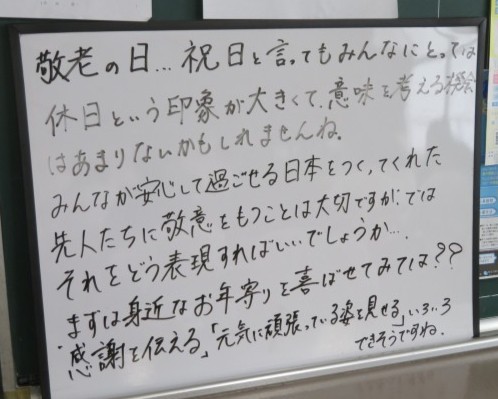 敬老の日…祝日と言ってもみんなにとっては
休日という印象が大きくて、意味を考える機会
はあまりないかもしれませんね。
みんなが安心して過ごせる日本をつくってくれた
先人たちに敬意をもつことは大切ですが、では
それをどう表現すればいいでしょうか…。
まずは身近なお年寄りを喜ばせてみては??
「感謝を伝える」「元気に頑張っている姿を見せる」いろいろ
できそうですね。